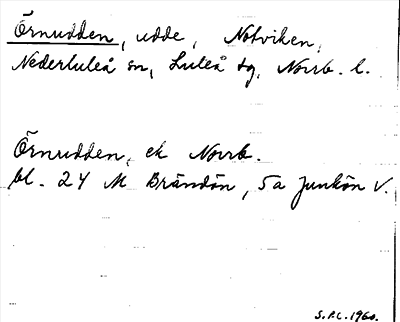 Örnudden, udde, Notviken,
Nederluleå sn, Luleå tg, Norrb. l.
Örnudden, ek Norrb.
bl. 24 M Brändön, 5a Junkön V.
S.P.C. 1960.